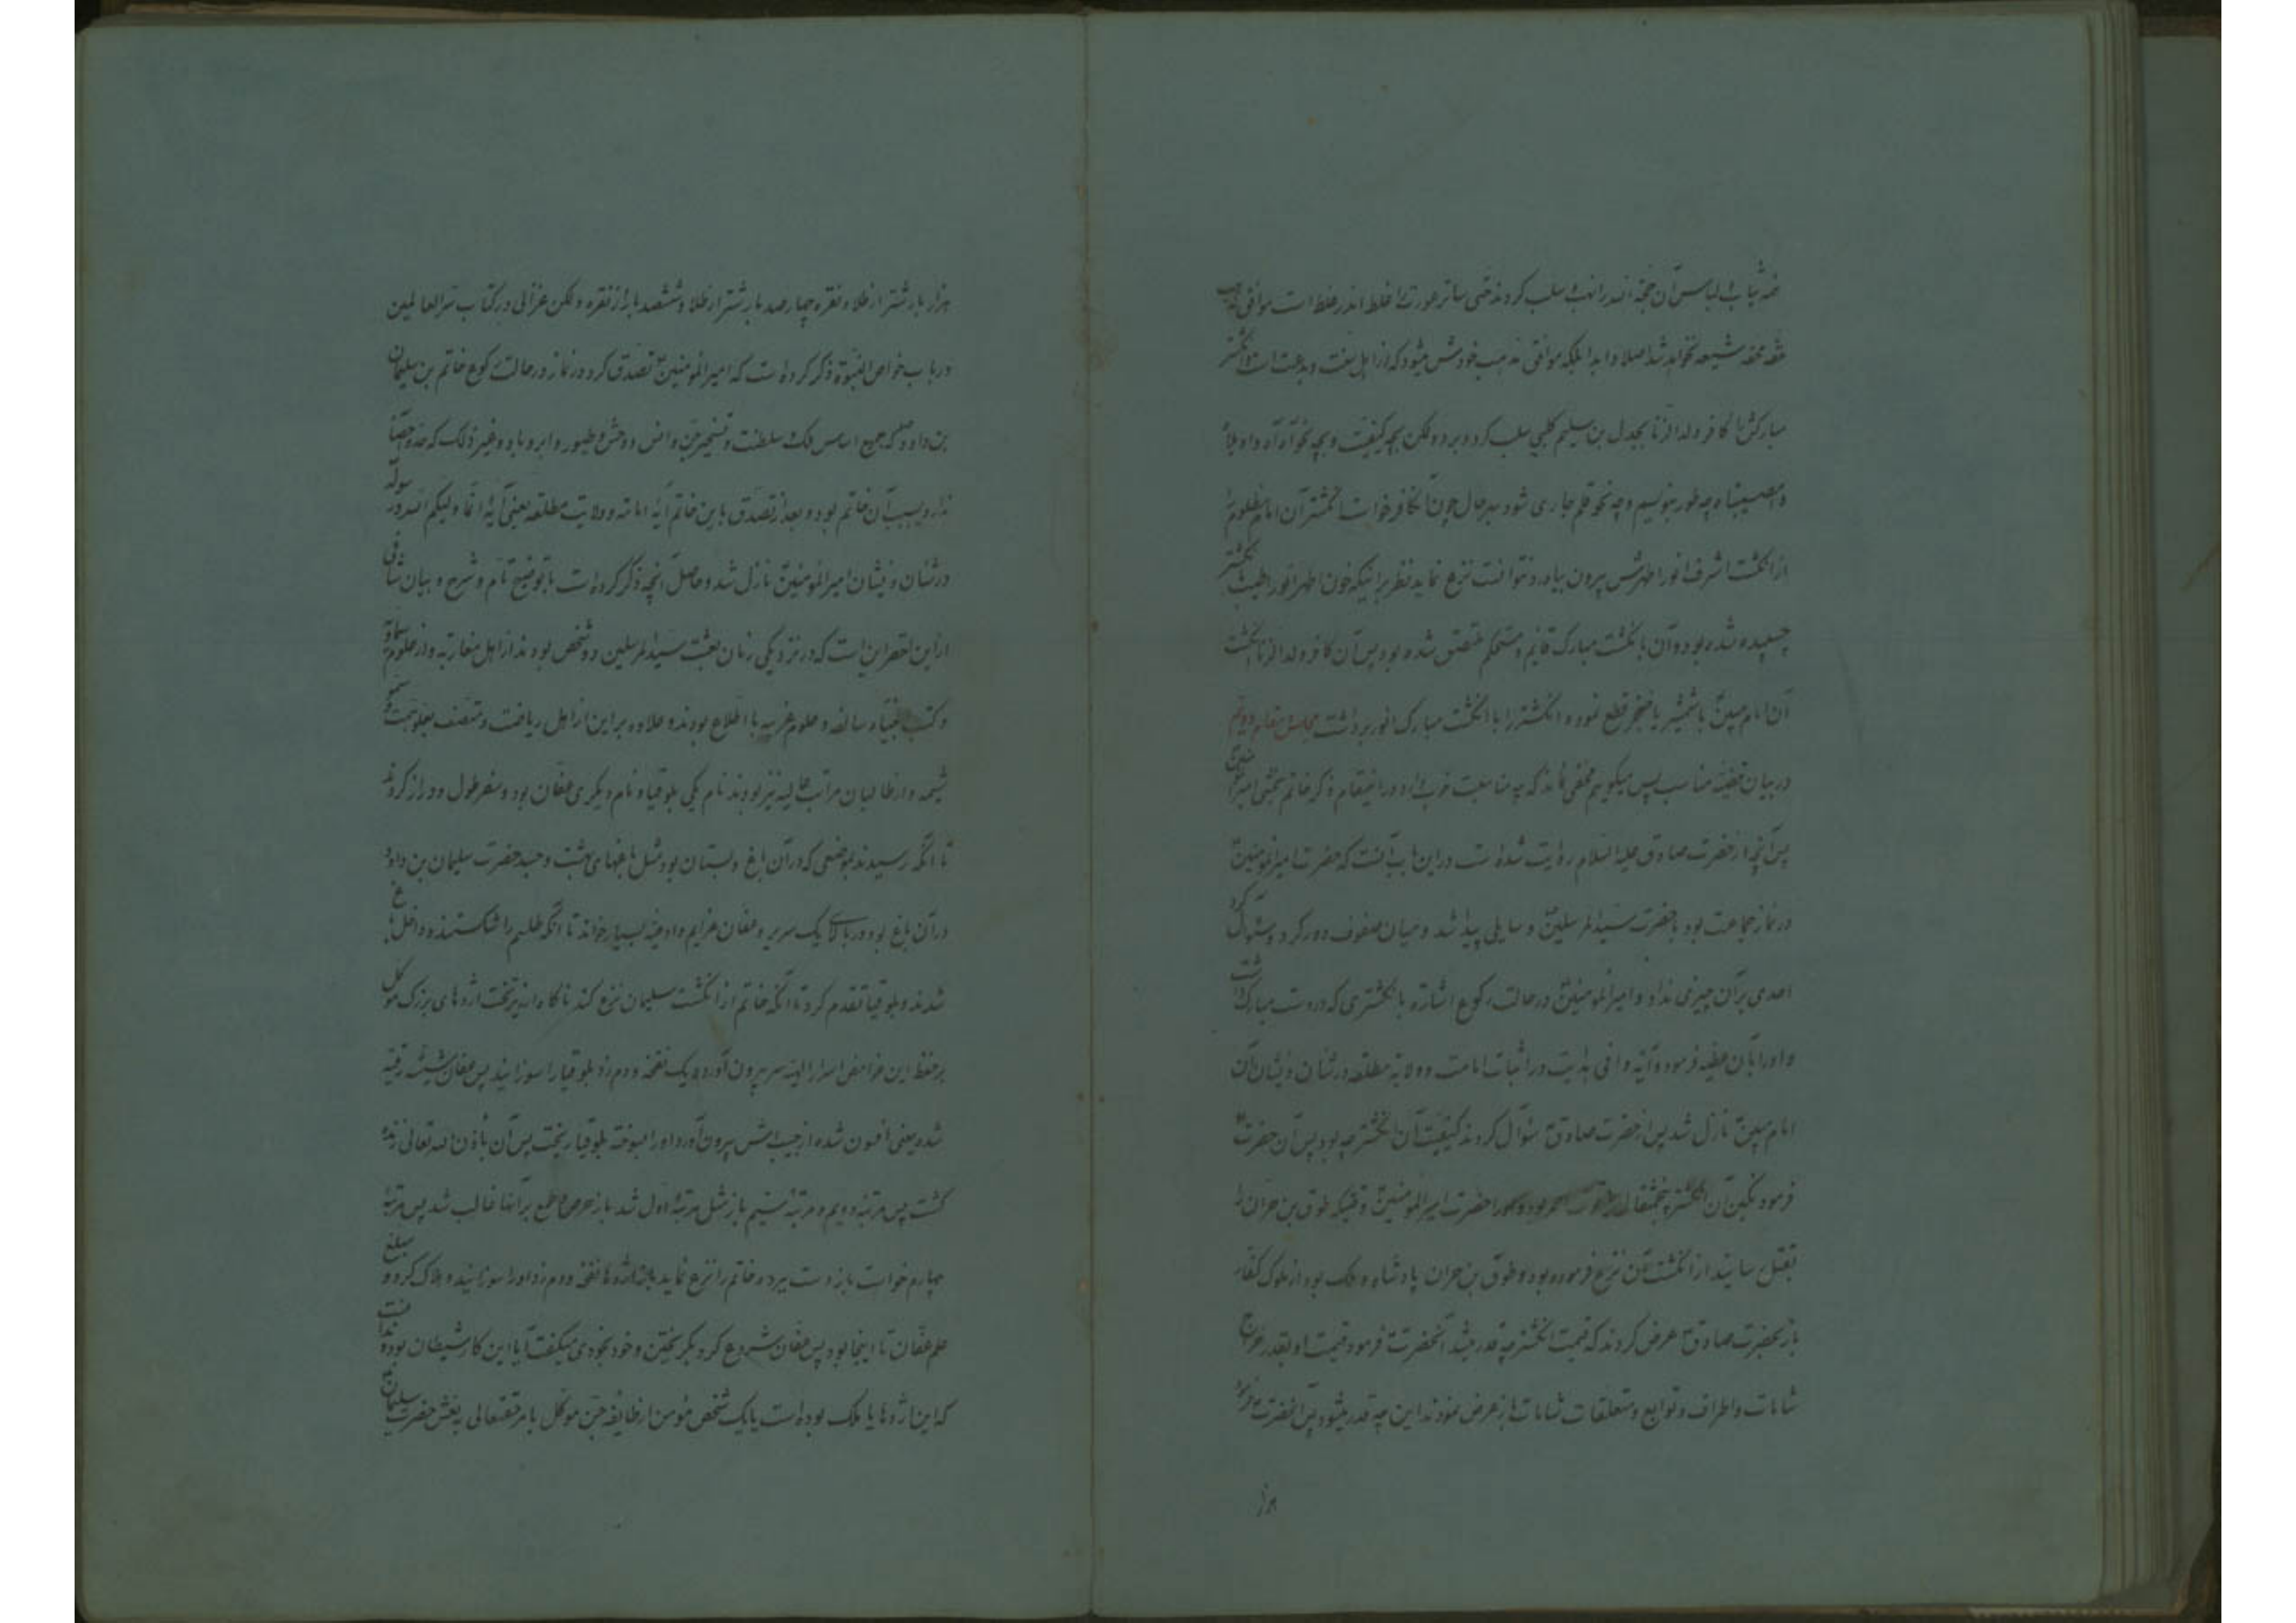 ثیاب و لباس آن حجة الله را نهب و سلب کردند حتی ساتر عورت را غلط اندر غلط است موافق مذهب
حقه شیعه نخواهد شد اصلا و ابدا بلکه موافق مذهب خودش میشود که از اهل سنت و بدعت است و انگشتر
مبارکش را کافر ولد الزنا بجدل بن سلیم کلبی سلب کرد و برد ولکن بچه کیفیت و بچه نحو آه آه واویلا
وامصیبتاه چه طور بنویسم و چه نحو قلم جاری شود بهر حال چون آن کافر خواست انگشتر آن امام مظلوم را
از انگشت اشرف انور اطهرش بیرون بیاورد نتوانست نزع نماید نظر براینکه خون اطهر انور اطیب بانگشتر
چسبیده شده بود و آن بانگشت مبارک قایم و مستحکم ملتصق شده بود پس آن کافر ولد الزنا انگشت
آن امام مبین باشمشیر یا خنجر قطع نمود و انگشتر را با انگشت مبارک انور برداشت مجلس مقام دویم
در بیان قضیه مناسب پس میگویم مخفی نماند که چه مناسبت خوب دارد در اینمقام ذکر خاتم بخشی امیر المؤمنین
پس آنچه از حضرت صادق علیه السلام روایت شده است در این باب آنست که حضرت امیر المؤمنین
در نماز جماعت بود با حضرت سید المرسلین و سایلی پیدا شد و میان صفوف دور کرد و سئوال کرد
احدی برآن چیزی نداد و امیر المؤمنین در حالت رکوع اشاره بانگشتری که در دست مبارک داشت
و او را بآن عطیه فرمود و آیه وافی هدایت در اثبات امامت و ولایة مطلقه در شان و نشان آن
امام مبین نازل شد پس از حضرت صادق سئوال کردند کیفیت آن انگشتر چه بود پس آن حضرت
فرمود نگین آن انگشتر پنجمثقال بود حضرت امیر المؤمنین وقتیکه طوق بن حران را
بقتل رسانید از انگشت آن نزع فرموده بود و طوق بن حران پادشاه و ملک بود از ملوک کفار
باز بحضرت صادق عرض کردند که قیمت انگشتر چه قدر میشد آنحضرت فرمود قیمت او بقدر خراج
شامات و اطراف و توابع و متعلقات شامات باز عرض نمودند این چه قدر میشود پس آنحضرت فرمود
هزار
هزار بار شتر از طلا و نقره چهار صد بار شتر از طلا و ششصد بار از نقره ولکن غزالی در کتاب سر العالمین
در باب خواص النبوة ذکر کرده است که امیر المؤمنین تصدق کرد در نماز در حالت رکوع خاتم بن سلیمان
بن داود که جمیع اساس ملک و سلطنت و تسخیر جن و انس و وحش و طیور و ابر و باد و غیر ذلک که حد و احصا
ندارد بسبب آن خاتم بود و بعد از تصدق باین خاتم آیه امامت و ولایت مطلقه یعنی آیه انما ولیکم الله و رسوله
در شان و نشان امیر المؤمنین نازل شد و حاصل آنچه ذکر کرده است با توضیح تام و شرح و بیان شافی
از این اخصر این است که در نزدیکی زمان بعثت سید المرسلین دو شخص بودند از اهل مغاربه و از علوم سماویه
و کتب انبیاء سالفه و علوم غریبه با اطلاع بودند و علاوه بر این از اهل ریاضت و متصف بعلو همت و سمو
شیمه و از طالبان مراتب عالیه نیز بودند نام یکی بلوقیا و نام دیگری عفان بود و سفر طول و دراز کردند
تا آنکه رسیدند بموضعی که در آن باغ و بستان بود مثل باغهای بهشت و جسد حضرت سلیمان بن داود
در آن باغ بود در بالای یک سریر و عفان عزایم و ادعیه بسیار خواند تا آنکه طلسم را شکستند و داخل باغ
شدند و بلوقیا تقدم کرد تا آنکه خاتم از انگشت سلیمان نزع کند ناگاه از زیر تخت اژدهای بزرگ موکل
بر حفظ این غوامض اسرار الهیه سر بیرون آورده یک نفخه و دم زد بلوقیا را سوزانید پس عفان شیشه رقیه
شده یعنی افسون شده از جیب اش بیرون آورد و او را بسوخته بلوقیا ریخت پس آن بأذن الله تعالی زنده
گشت پس مرتبه دویم و مرتبه سیم باز مثل مرتبه اول شد باز حرص و طمع بر آنها غالب شد پس مرتبه
چهارم خواست باز دست ببرد و خاتم را نزع نماید باز اژدها نفخ و دم زد او را سوزانید و هلاک کرد و مبلغ
علم عفان تا اینجا بود پس عفان شروع کرد بگریختن و خود بخود می میگفت آیا این کار شیطان بود و ندانست
که این اژدها یا ملک بوده است یا یک شخص مؤمن از طایفه جن موکل بامر حقتعالی به نعش حضرت سلیمان